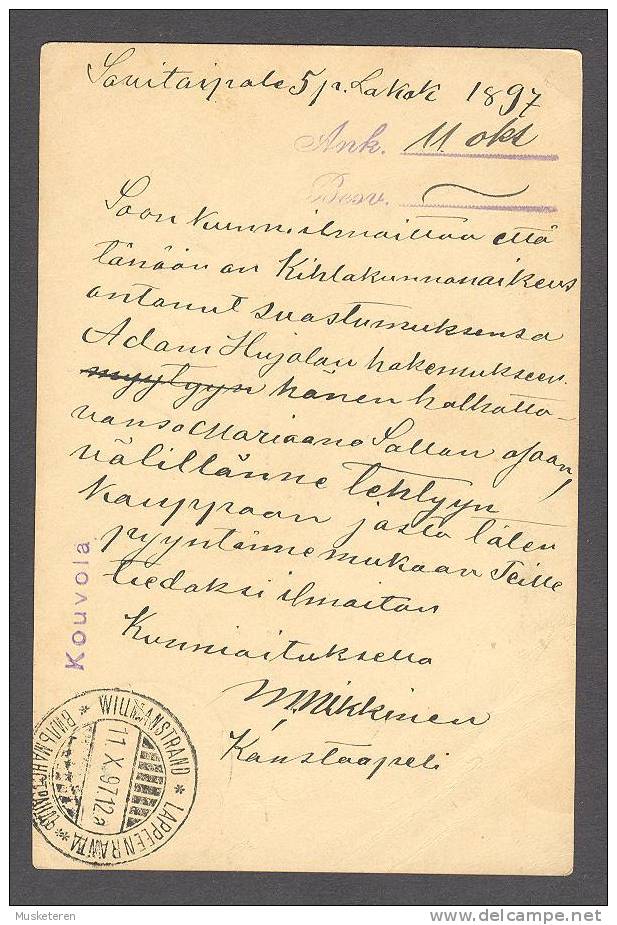 Savitaipale 5 p. Lokak 1897
Ank. 11 okt
Besv.
Saan kunn ilmoittaa että
tänään on Kihlakunnanoikeus
antanut suostumuksensa
Adam Hujalan hakemukseen
myytyyn hänen holhotta-
vansa Mariaana Sallan osaan
välillänne tehtyyn
kauppaan josta täten
pyyntönne mukaan Teille
tiedoksi ilmoitan
Kunnioituksella
M. Mikkinen
Konstaapeli
Kouvola
WILLMANSTRAND * LAPPEENRANTA *
11.X.97.12a
Musketeren
delcampe.net